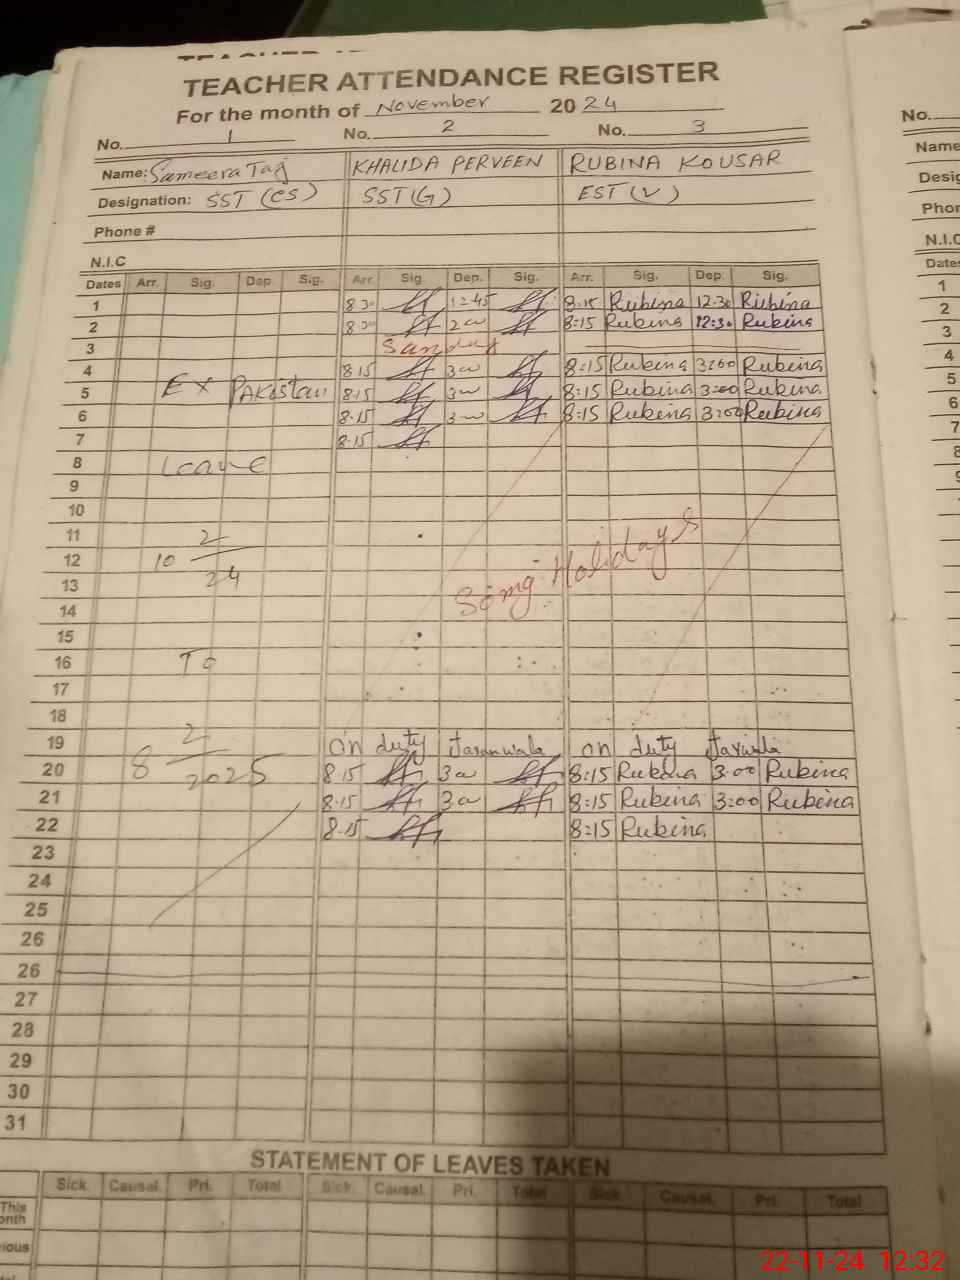 TEACHER ATTENDANCE REGISTER
For the month of November 2024
No. 1 No. 2 No. 3 No.
Name: Sameera Taj KHALIDA PERVEEN RUBINA KOUSAR Name
Designation: SST (CS) SST (G) EST (V) Desig
Phone # Phor
N.I.C N.I.C
Dates Arr. Sig. Dep. Sig. Arr. Sig. Dep. Sig. Arr. Sig. Dep. Sig. Dates
1 8 30 12 45 8:15 Rubina 12:30 Rubina 1
2 8:15 Rubina 12:30 Rubina 2
3 Sunday 3
4 8 15 8:15 Rubina 3:00 Rubina 4
5 Ex Pakistan 8.15 8:15 Rubina 3:00 Rubina 5
6 8.15 8:15 Rubina 3:00 Rubina 6
7 8.15 7
8 Leave 8
9 9
10
11 2
12 10
13 24
Somg Holidays
14
15
16 To
17
18
19 2 on duty Jaranwala on duty
20 8 2025 8.15 8:15 Rubina 3:00 Rubina
21 8.15 8:15 Rubina 3:00 Rubina
22 8.15 8:15 Rubina
23
24
25
26
26
27
28
29
30
31
STATEMENT OF LEAVES TAKEN
Sick. Causal. Pri. Total Sick. Causal. Pri. Total Sick. Causal. Pri. Total
This
onth
ious
22-11-24 12:32